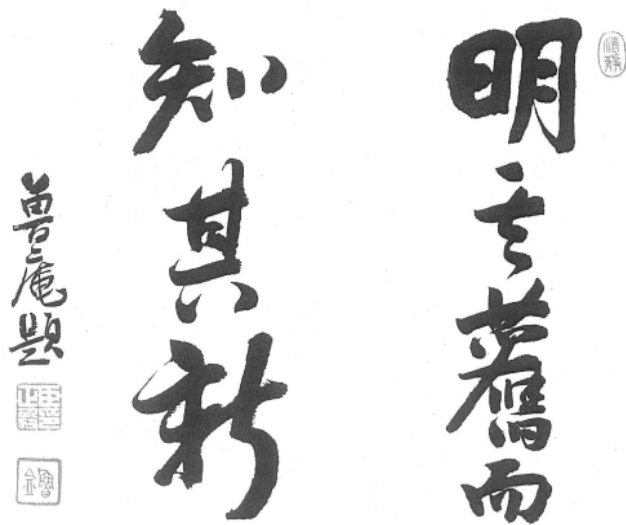 明其舊而
知其新
曾庵題